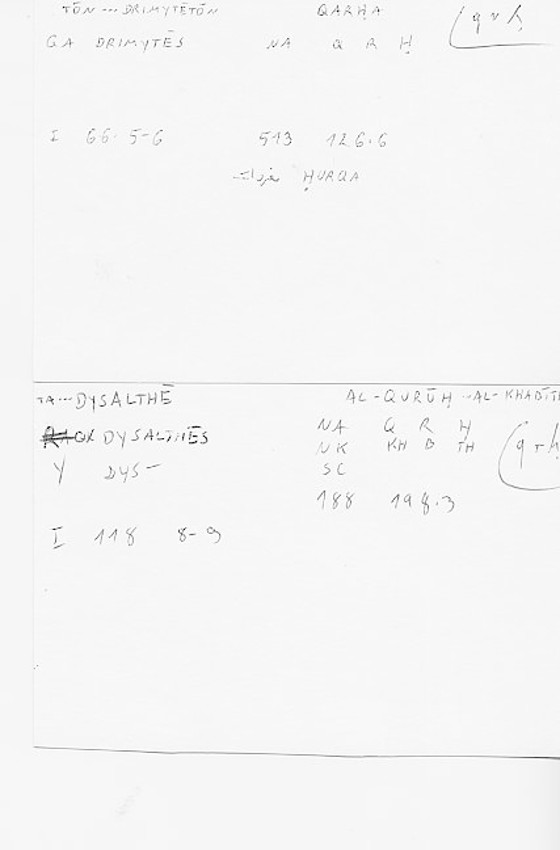 TŌN --- DRIMYTĒTŌN QARḤA
GA DRIMYTĒS NA Q R Ḥ (qrḥ
I 66. 5-6 513 126.6
ḤURQA
TA --- DYSALTHĒ AL-QURŪḤ --AL-KHABĪTH
QX DYSALTHĒS NA Q R Ḥ
NK KH B TH (qrḥ
Y DYS- SC
188 198.3
I 118 8-9